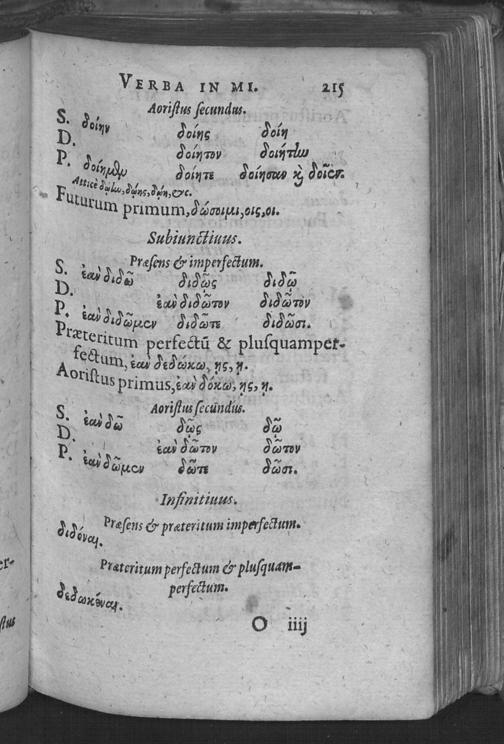 VERBA IN MI. 215
Aoristus secundus.
S. δοίην δοίης δοίη
D. δοίητον δοιήτην
P. δοίημεν δοίητε δοίησαν κ̀ δοῖεν.
Atticè δῴην, δῴης, δῴη, &c.
Futurum primum, δώσοιμι, οις, οι.
Subiunctiuus.
Præsens & imperfectum.
S. ἐὰν διδῶ διδῷς διδῷ
D. ἐὰν διδῶτον διδῶτον
P. ἐὰν διδῶμεν διδῶτε διδῶσι.
Præteritum perfectū & plusquamper-
fectum, ἐὰν δεδώκω, ῃς, ῃ.
Aoristus primus, ἐὰν δόκω, ῃς, ῃ.
Aoristus secundus.
S. ἐὰν δῶ δῷς δῷ
D. ἐὰν δῶτον δῶτον
P. ἐὰν δῶμεν δῶτε δῶσι.
Infinitiuus.
Præsens & præteritum imperfectum.
διδόναι.
Præteritum perfectum & plusquam-
perfectum.
δεδωκέναι.
O iiij